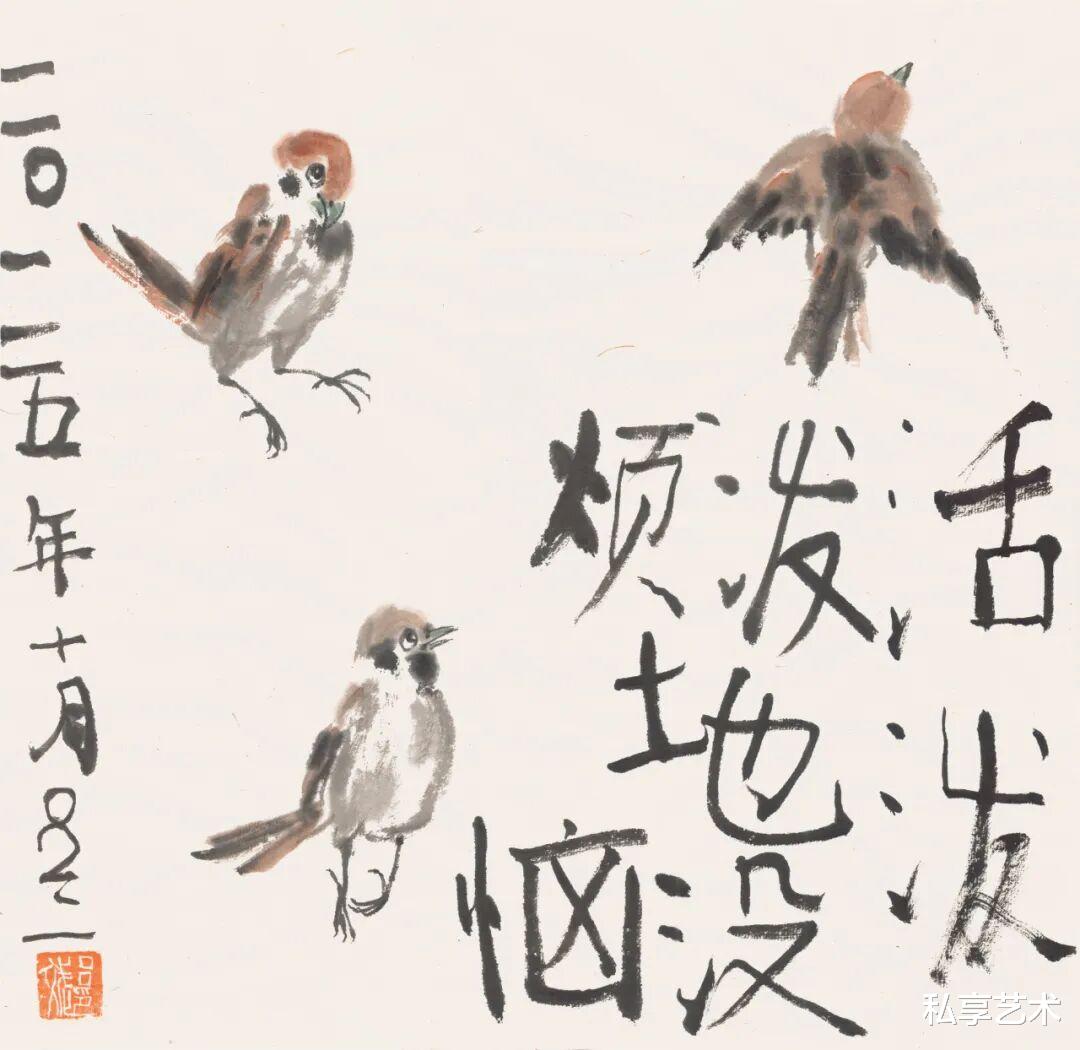 活泼
泼地没
烦恼
二〇二五年十月
私享艺术